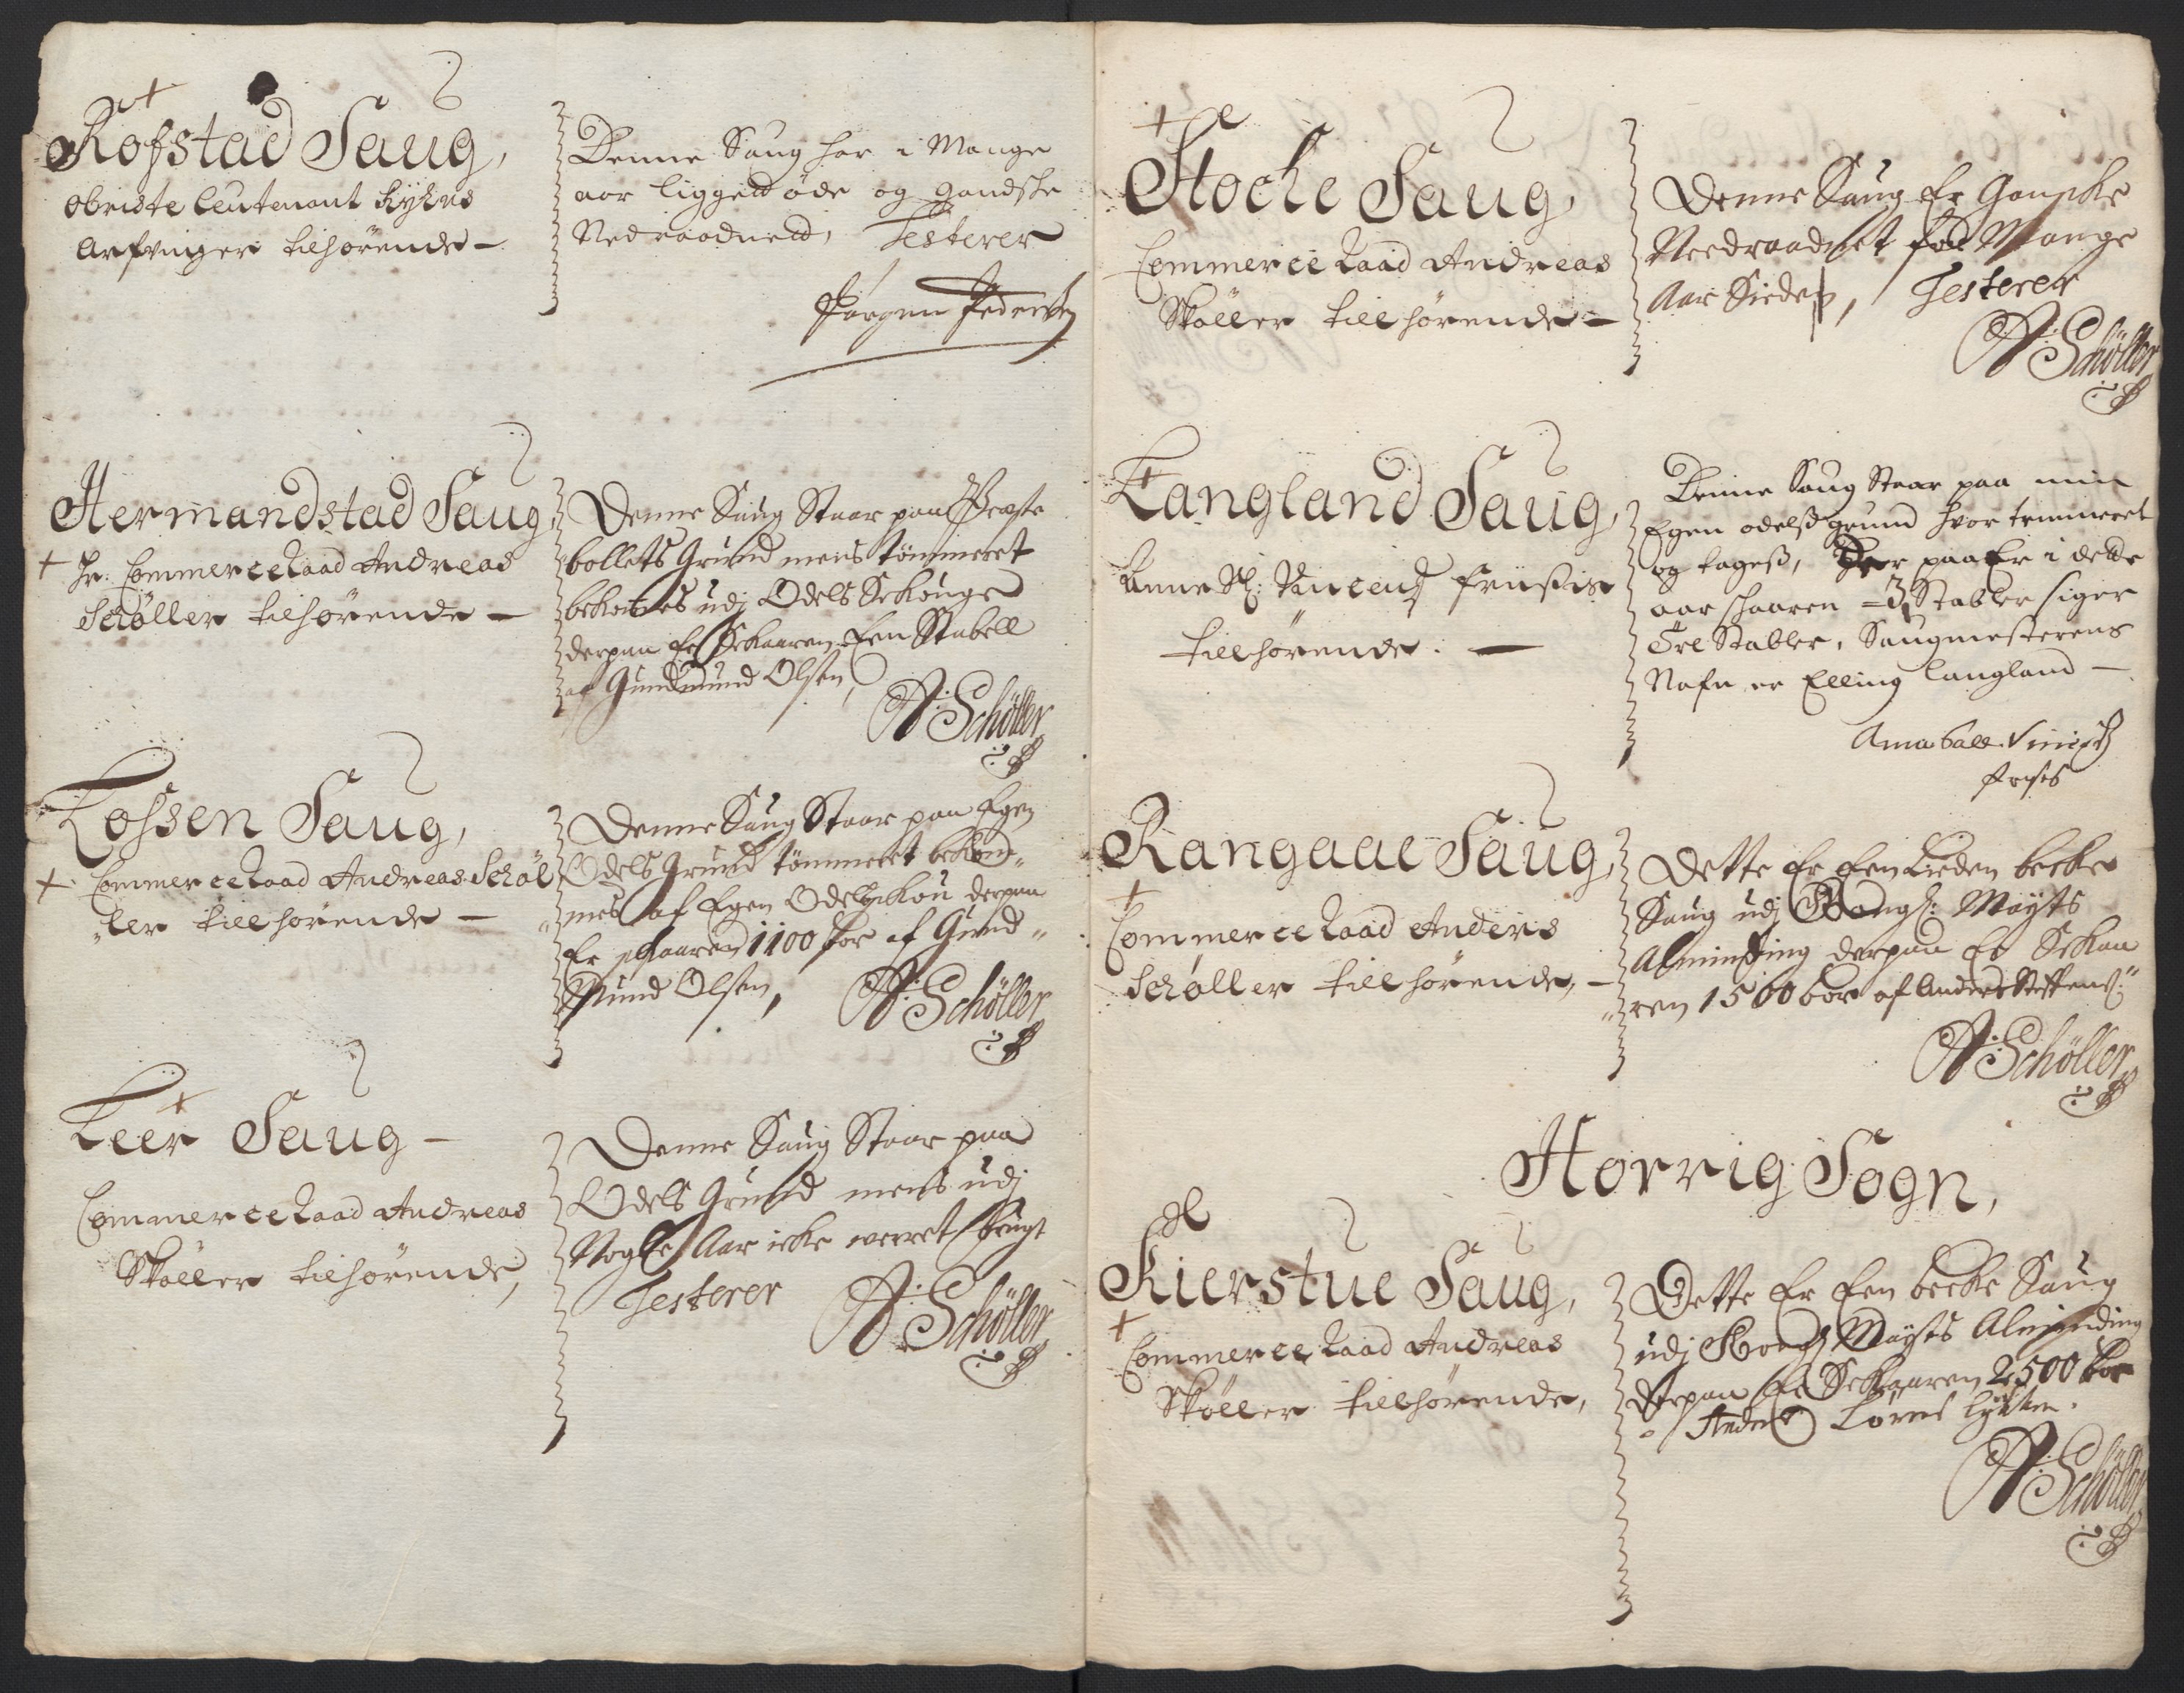 Rofstad Saug,
Obriste Leutenant Kyhns
Arfvinger tilhørende –
Denne Saug har i Mange
aar ligget øde og gandske
Nedraadned, Testerer
Jørgen Pedersen
Hermandstad Saug,
Hr: Commerceraad Andreas
Schøller tilhørende –
Denne Saug Staar paa Præste
bollets Grund mens tømmeret
bekomes udj Odels Skouge
derpaa Er Skaaren Een Stabell
af Gundmund Olsen,
A: Schöller
Fossen Saug,
Commerceraad Andreas Schøl
ler tillhørende –
Denne Saug Staar paa Egen
Odels Grund tømmeret bekom„
mes af Egen Odelskou derpaa
Er skaaren 1100 bor af Gund„
Mund Olsen,
A: Schöller
Leer Saug –
Commerceraad Andreas
Skøller tilhørende,
Denne Saug Staar paa
Odels Grund mens udj
Nogle Aar icke verret brugt
Testerer
A: Schöller
Stocke Saug,
Commerce Raad Andreas
Skøller tillhørende –
Denne Saug Er Ganske
Needraadnet for Mange
Aar Siden, Testerer
A: Schöller
Langland Saug,
Anne Sl:
tillhørende. –
Denne Saug Staar paa min
Egen odelß grund hvor temmeret
og tageß, Der paa Er i dette
aar skaaren = 3 Stabler siger
Tre Stabler, Saugmesterens
Nafn er Elling Langland –
Rangaae Saug,
Commerce Raad Anders
Schøller tillhørende, –
Dette Er Een Liden becke
Saug udj Kongl: Mayts
Alminding derpaa Er Skaa
„ren 1500 bor af Anders Steffens:
A: Schöller
Horrig Sogn,
Kierstue Saug,
Commerce Raad Andreas
Skøller tillhørende,
Dette Er Een becke Saug
udj Kongl Mayts Alminding
derpaa Er Skaaren 2500 bor
Anders
A: Schöller